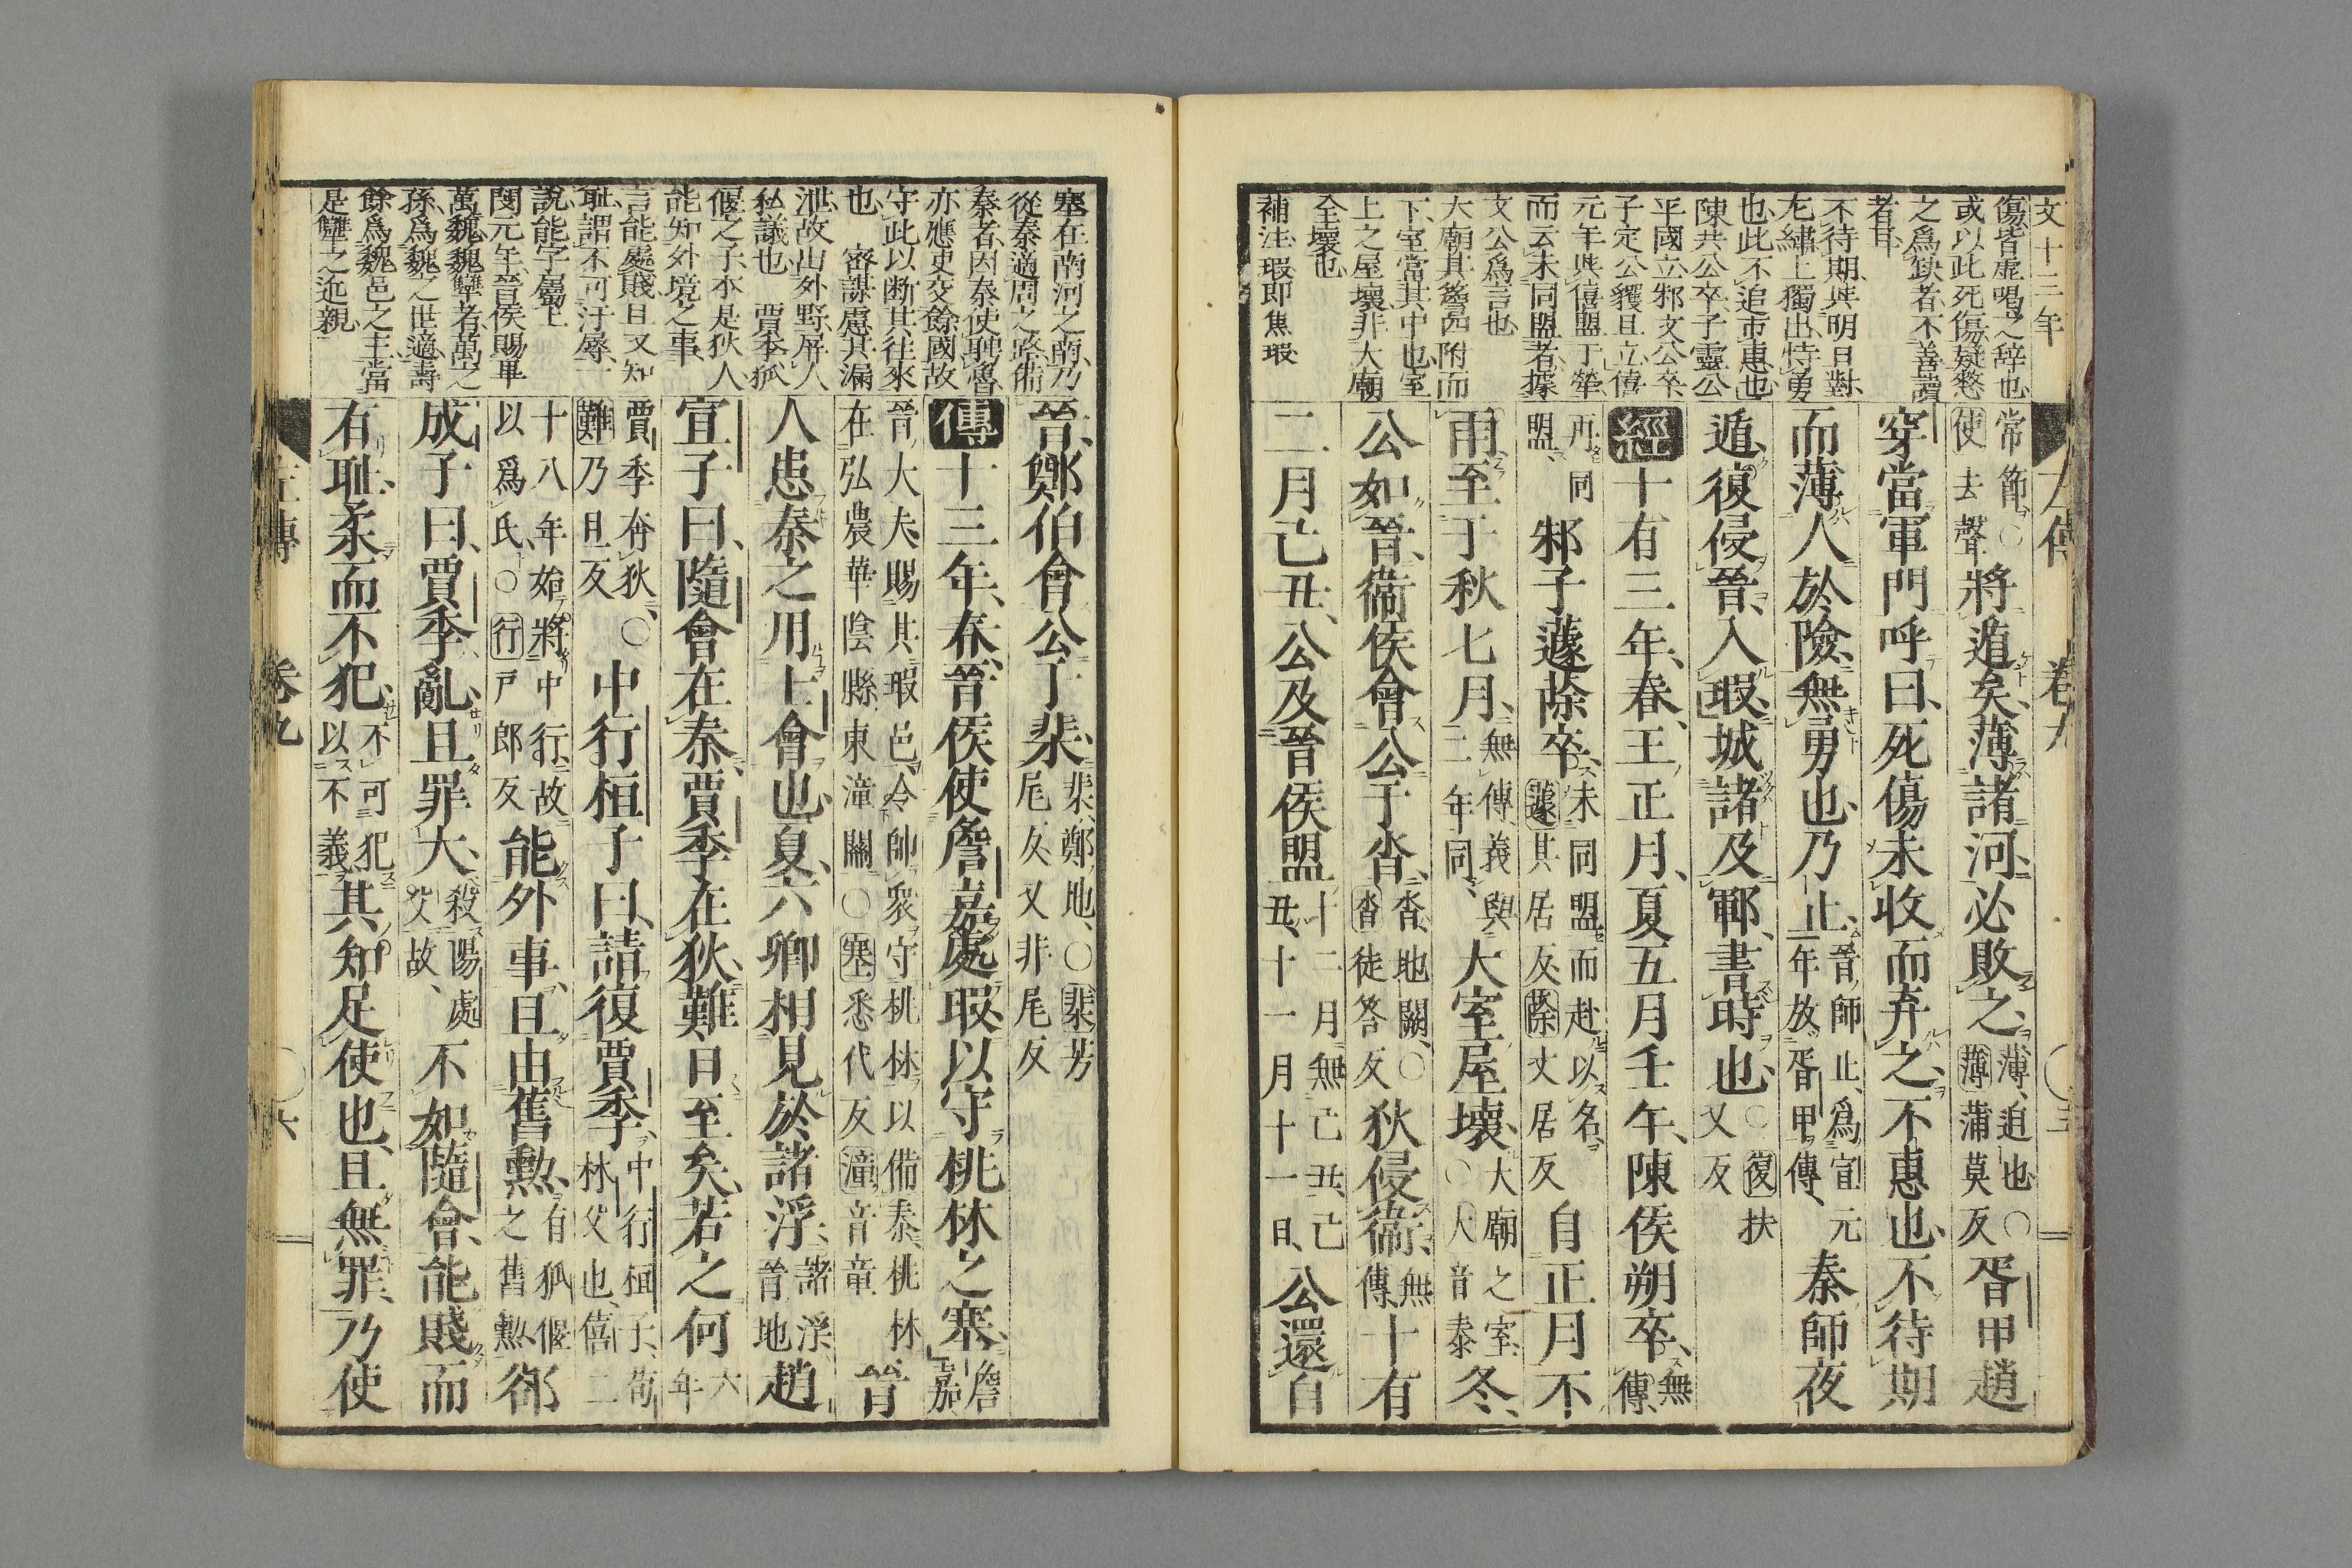 文十二年
左傳 卷九 〇三
傷、皆虛喝之辞也、
或以此死傷疑憖
之爲缺者、不善讀
者耳、
不待期、與明日對、
尨繡上獨出、恃勇
也、此不追市惠也、
陳共公卒、子靈公
平國立、邾文公卒、
子定公貜且立、僖
元年與僖盟于犖、
而云未同盟者、據
文公爲言也、
大廟其簷四附而
下、室當其中也、室
上之屋壞、非大廟
全壞也、
補注、瑕即焦瑕
常節〇使去聲將遁矣、薄諸河、必敗之、薄、迫也〇薄蒲莫反胥甲趙
穿當軍門呼曰、死傷未收而弃之、不惠也、不待期
而薄人於險、無勇也、乃止、晉師止、爲宣元年放胥甲傳、秦師夜
遁、復侵晉、入瑕、城諸及鄆、書時也、〇復扶又反
經十有三年、春、王正月、夏五月壬午、陳侯朔卒、無傳、
再同盟、邾子蘧蒢卒、未同盟而赴以名、蘧其居反、蒢丈居反自正月不
雨、至于秋七月、無傳、義與二年同、大室屋壞、大廟之室、〇大音泰冬、
公如晉、衛侯會公于沓、沓、地闕、〇沓徒答反狄侵衛、無傳、十有
二月己丑、公及晉侯盟、十二月無己丑、己丑、十一月十一日、公還自
塞在南河之南、乃
從秦適周之路、備
秦者、因秦使聘魯、
亦應史交餘國、故
守此以断其往來
也、 密謀慮其漏
泄、故出外野、屏人
私議也、 賈季狐
偃之子、本是狄人、
能知外境之事、
言能處賤且又知
耻、謂不可汙辱、一
說、能字屬上
閔元年、晉侯賜畢
萬魏、魏犨者、萬之
孫、爲魏之世適、壽
餘爲魏邑之主、當
是犨之近親、
晉、鄭伯會公于棐、棐、鄭地、〇棐芳尾反又非尾反
傳十三年、春、晉侯使詹嘉處瑕、以守桃林之塞、詹嘉、
晉大夫、賜其瑕邑、令帥衆守桃林以備秦、桃林、在弘農華陰縣東潼關〇塞悉代反潼音童晉
人患秦之用士會也、夏、六卿相見於諸浮、諸浮、晉地趙
宣子曰、隨會在秦、賈季在狄、難日至矣、若之何、六年
賈季奔狄、〇難乃旦反中行桓子曰、請復賈季、中行桓子、荀林父也、僖二
十八年始將中行、故以爲氏、〇行戶郎反能外事、且由舊勲、有狐偃之舊勲、郤
成子曰、賈季亂、且罪大、殺陽處父故、不如隨會、能賤而
有耻、柔而不犯、不可犯以不義、其知足使也、且無罪、乃使
左傳 卷九 〇六